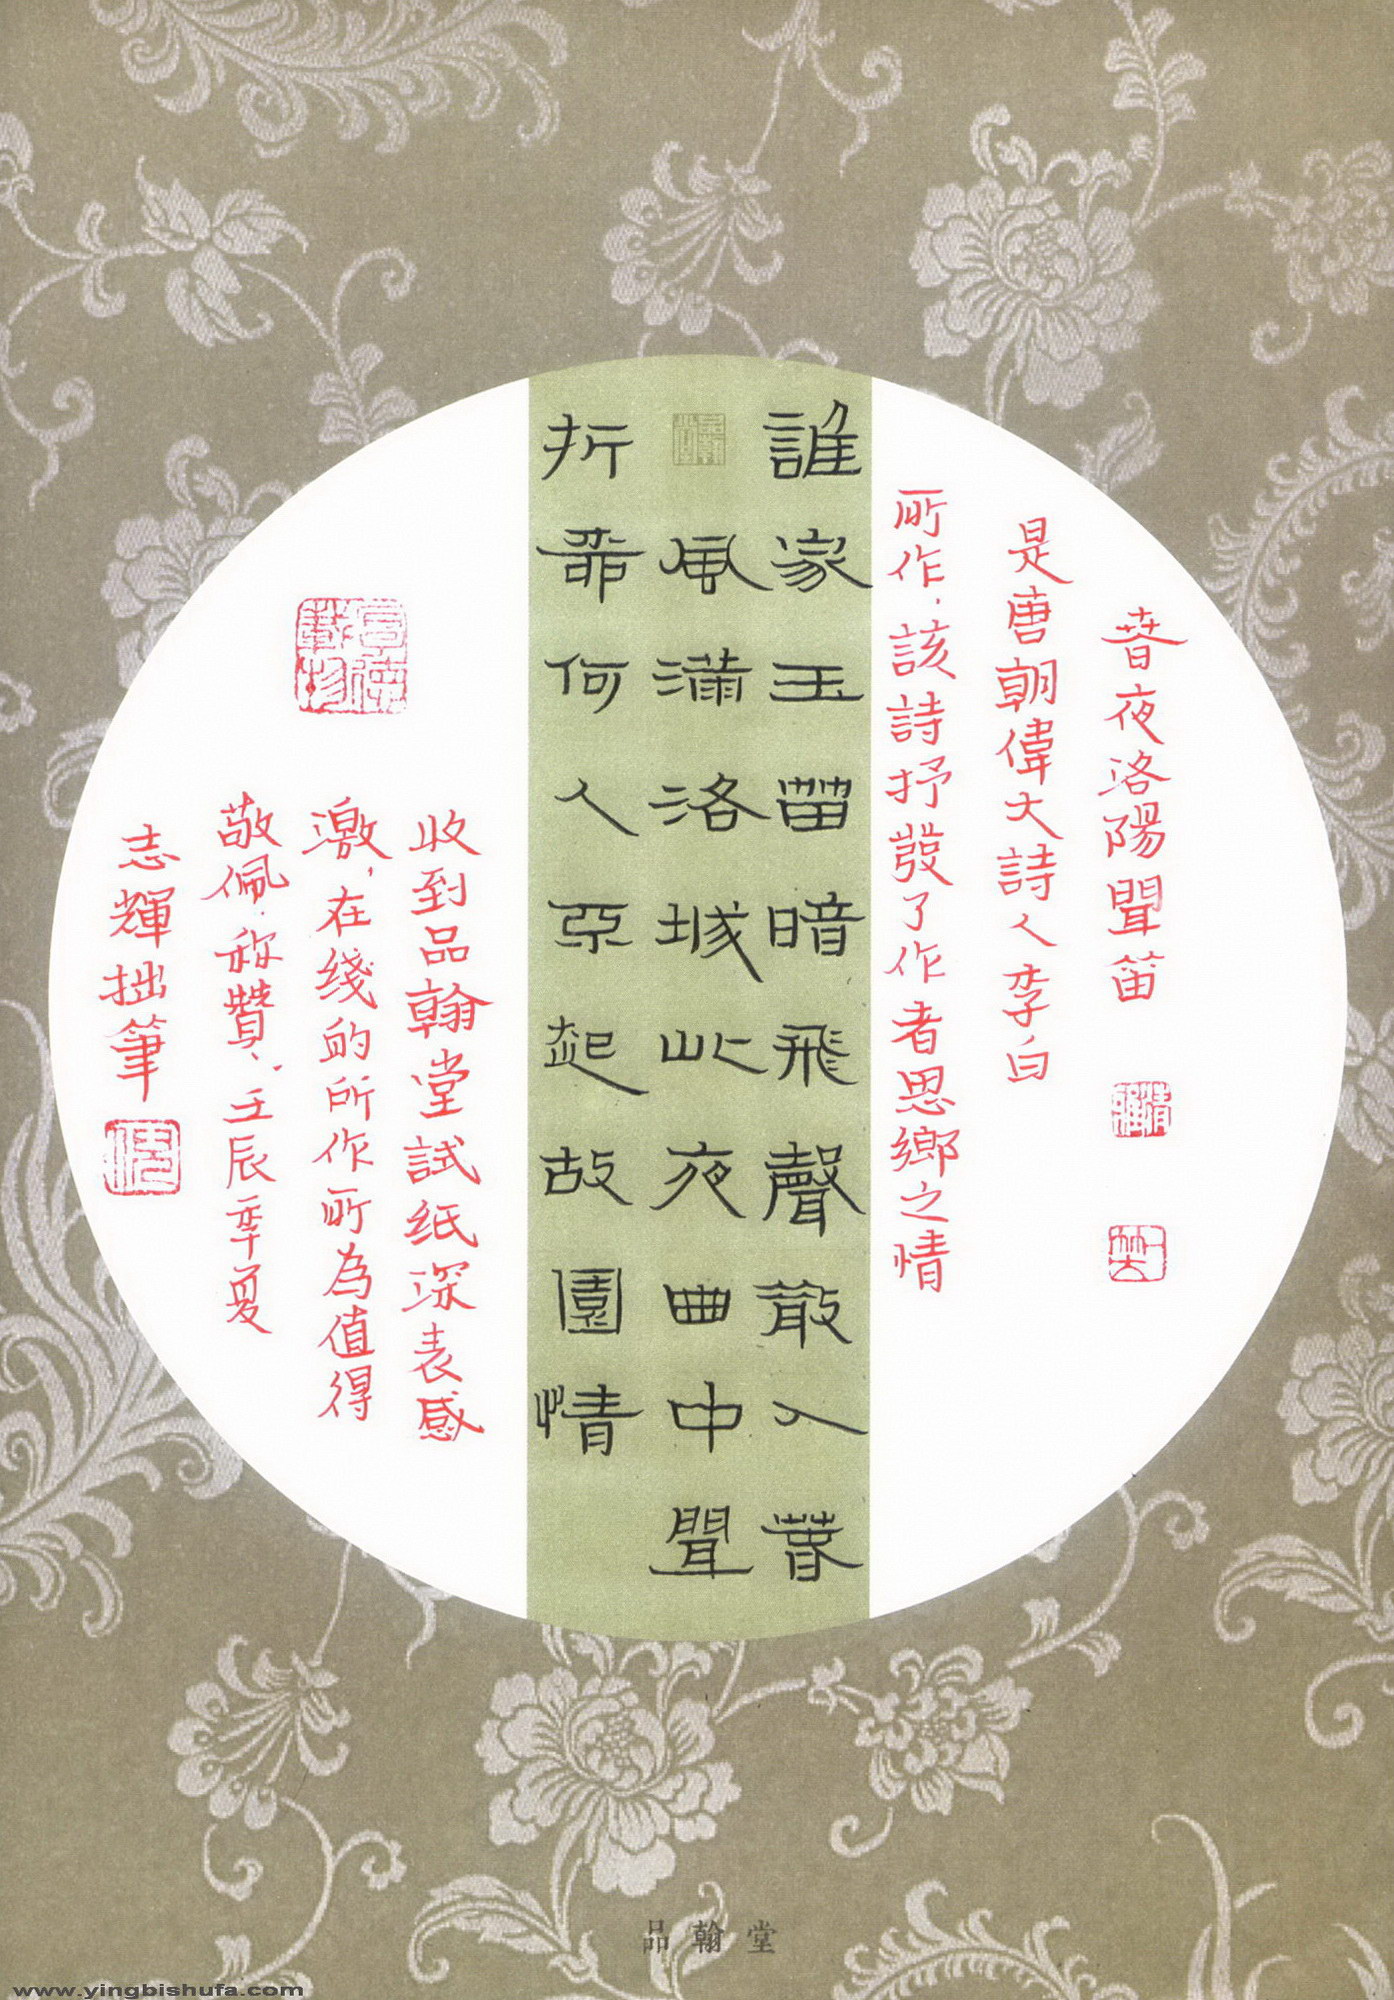 春夜洛陽聞笛
是唐朝偉大詩人李白
所作.該詩抒發了作者思鄉之情
誰家玉笛暗飛聲散入春
風滿洛城此夜曲中聞
折柳何人不起故園情
收到品翰堂試纸深表感
激,在线的所作所為值得
敬佩.称贊、壬辰年夏
志輝拙筆
厚德載物
品翰堂
www.yingbishufa.com